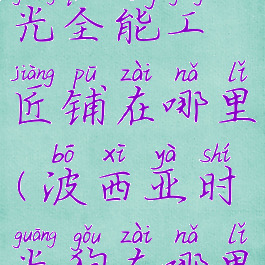 光全能工
jiàng pū zài nǎ lǐ
匠铺在哪里
bō xī yà shí
(波西亚时
guāng gǒu zài nǎ lǐ
光狗在哪里